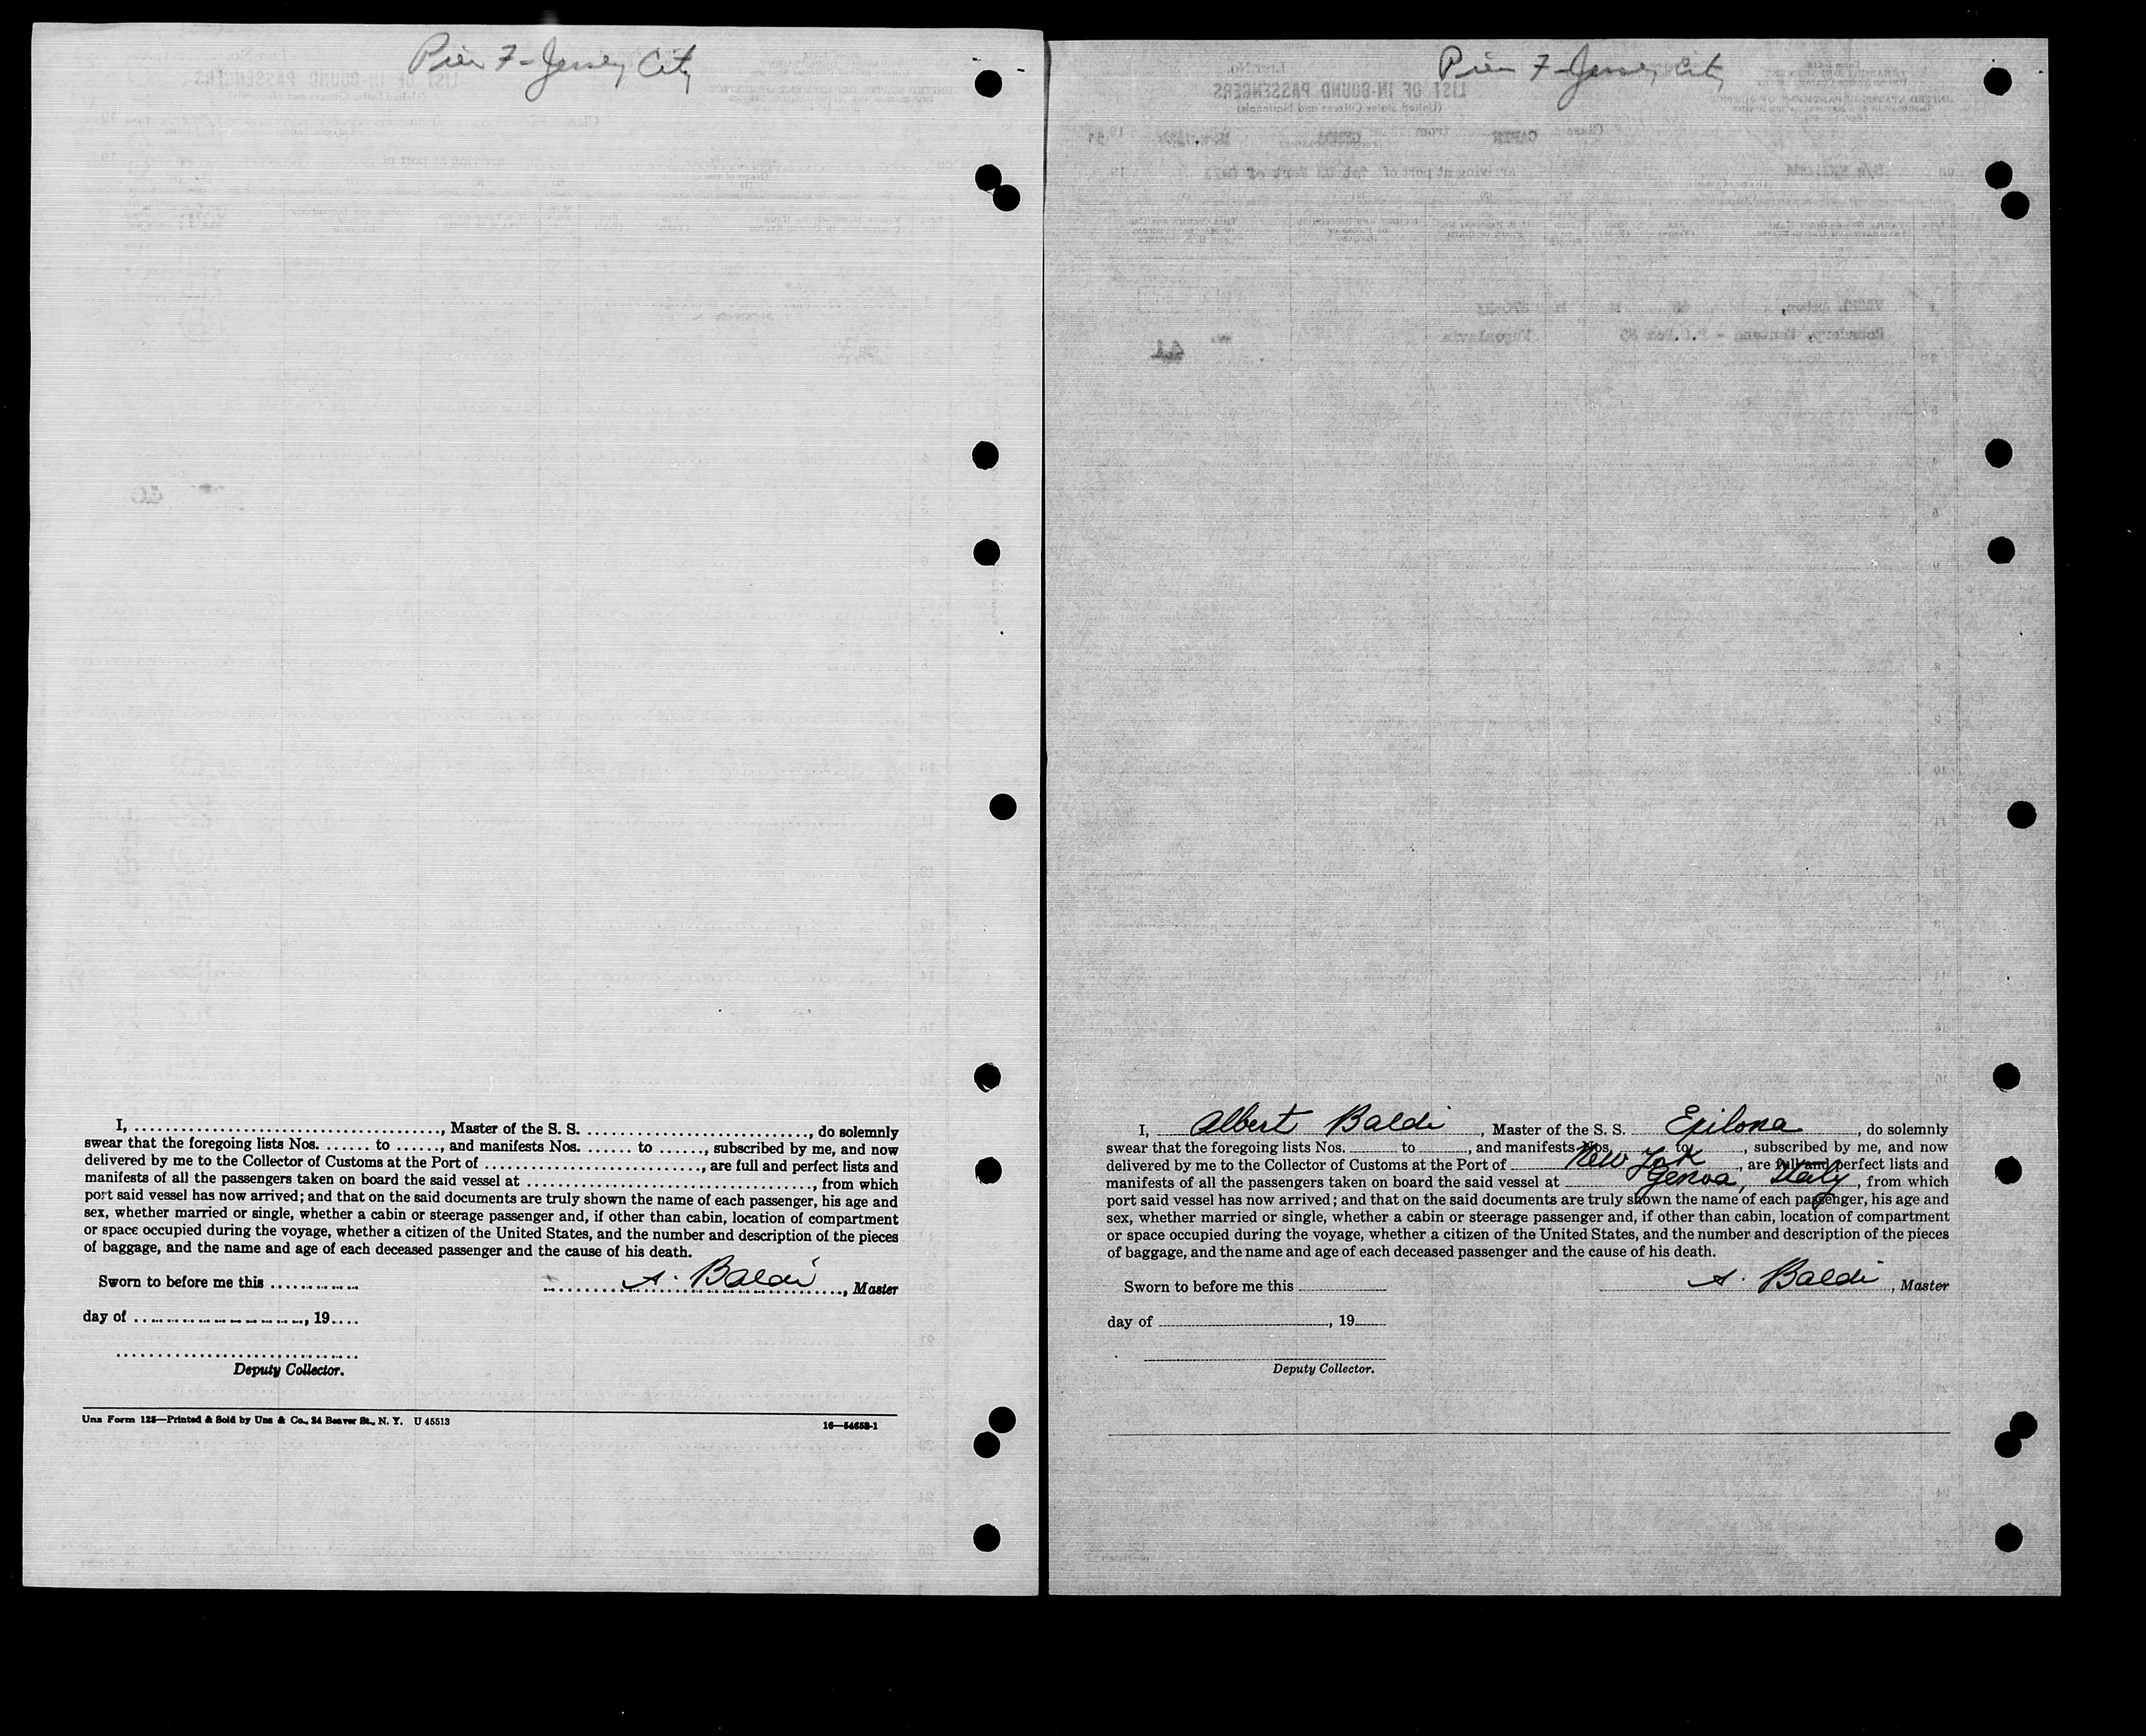 Pier 7 - Jersey City
I, ........, Master of the S. S. ........, do solemnly
swear that the foregoing lists Nos. ...... to ......, and manifests Nos. ...... to ......, subscribed by me, and now
delivered by me to the Collector of Customs at the Port of ........, are full and perfect lists and
manifests of all the passengers taken on board the said vessel at ........, from which
port said vessel has now arrived; and that on the said documents are truly shown the name of each passenger, his age and
sex, whether married or single, whether a cabin or steerage passenger and, if other than cabin, location of compartment
or space occupied during the voyage, whether a citizen of the United States, and the number and description of the pieces
of baggage, and the name and age of each deceased passenger and the cause of his death.
Sworn to before me this ........ A. Baldi, Master
day of ........, 19....
Deputy Collector.
Unz Form 128—Printed & Sold by Unz & Co., 24 Beaver St., N. Y. U 45513 16—54658-1
Pier 7 - Jersey City
LIST OF IN-BOUND PASSENGERS
(United States Citizens and Nationals)
I, Albert Baldi, Master of the S. S. Exilona, do solemnly
swear that the foregoing lists Nos. ........ to ........, and manifests Nos. ........ to ........, subscribed by me, and now
delivered by me to the Collector of Customs at the Port of New York, are full and perfect lists and
manifests of all the passengers taken on board the said vessel at Genoa, Italy, from which
port said vessel has now arrived; and that on the said documents are truly shown the name of each passenger, his age and
sex, whether married or single, whether a cabin or steerage passenger and, if other than cabin, location of compartment
or space occupied during the voyage, whether a citizen of the United States, and the number and description of the pieces
of baggage, and the name and age of each deceased passenger and the cause of his death.
Sworn to before me this ........ A. Baldi, Master
day of ........, 19....
Deputy Collector.